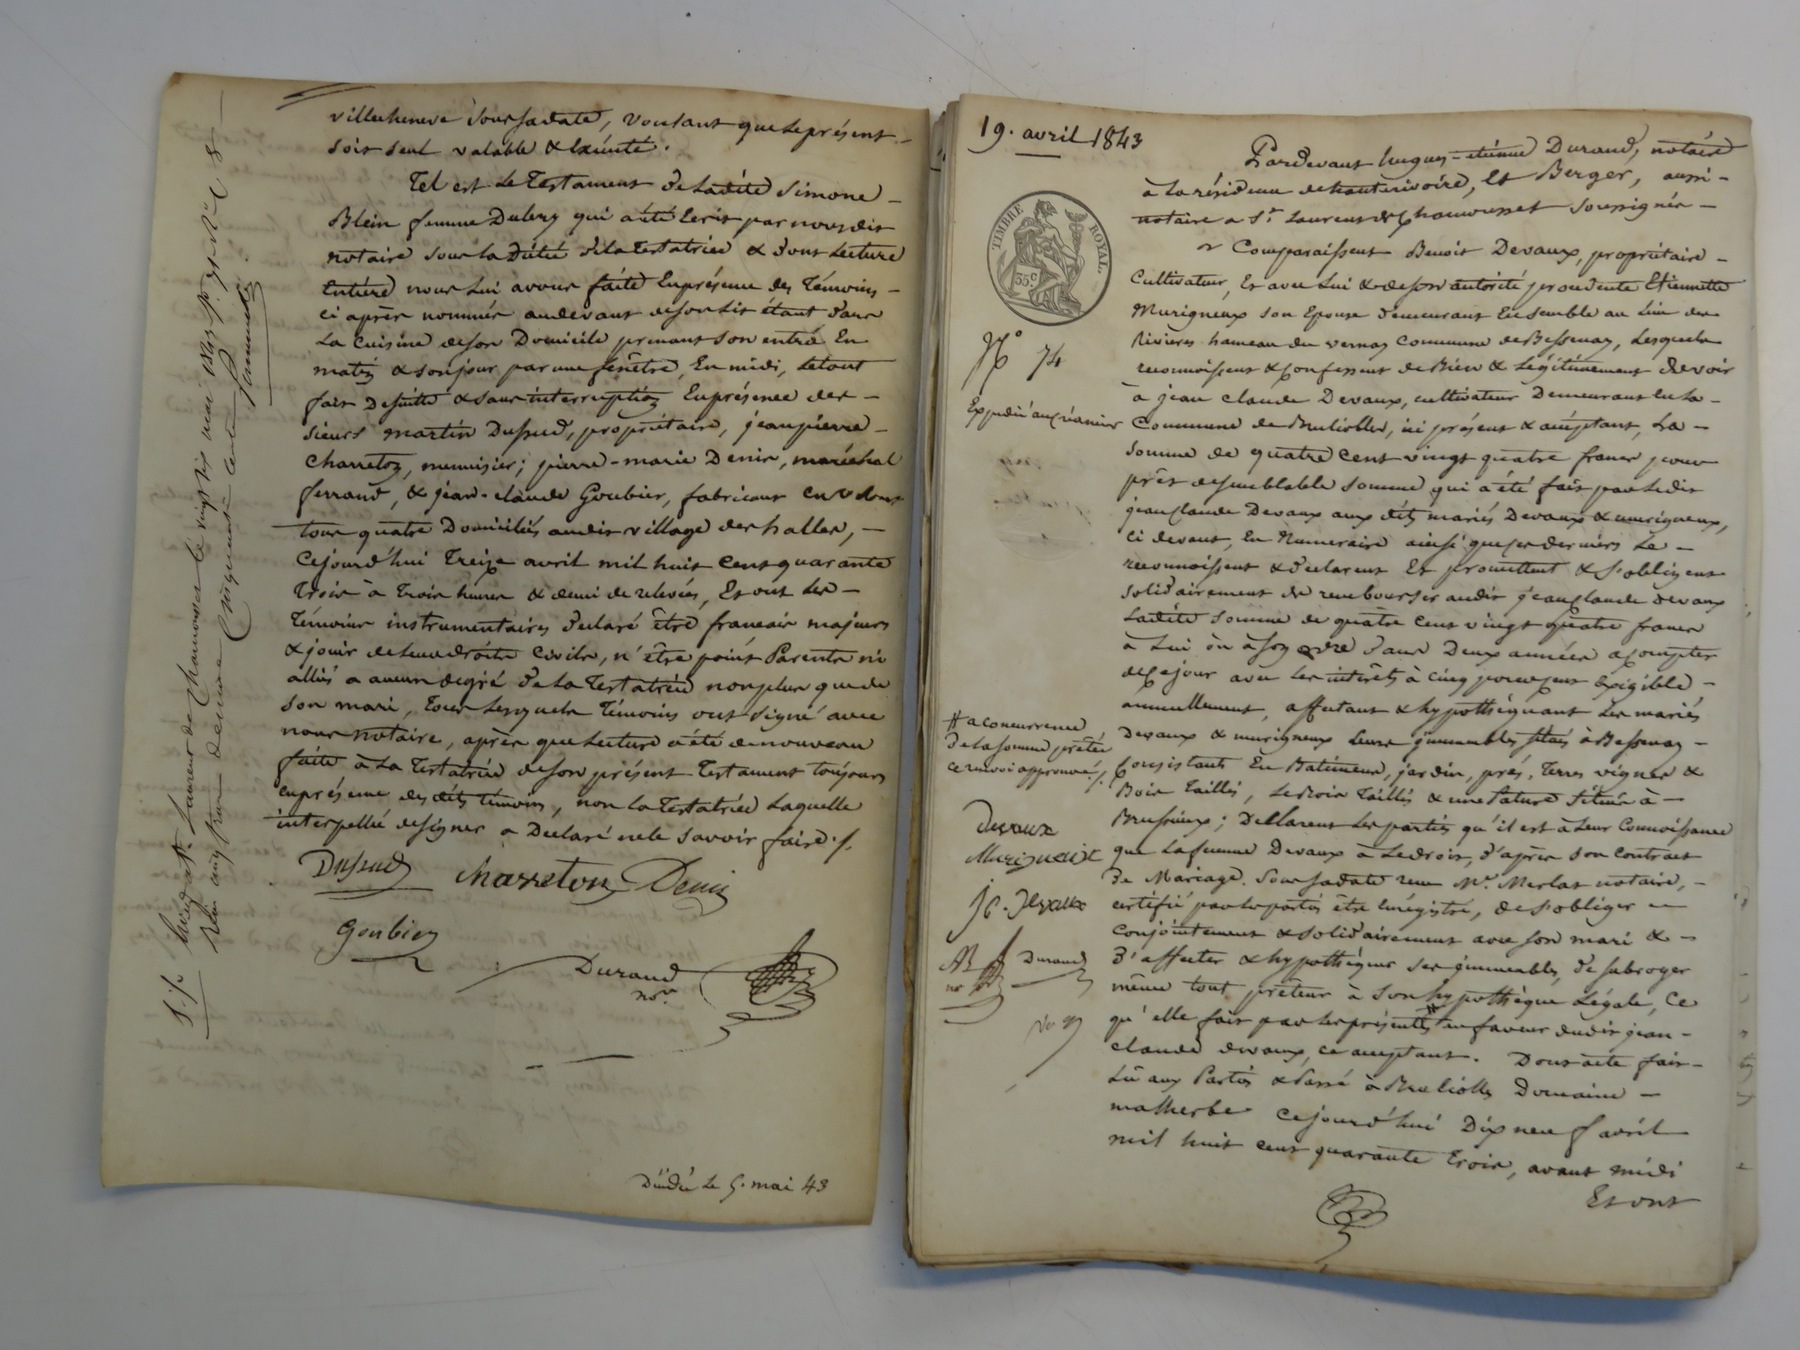 villecheneve sous sa date, voulant que le présent
soit seul valable & éxécuté.
Tel est le Testament de Ladite Simone
Blein femme Dubery qui a été écrit par nous dit
notaire sous la dictée de la Testatrice & dont lecture
Entiere nous lui avons faite En présence des Témoins
ci après nommés audevant de son lit étant dans
la Cuisine de son Domicile prenant son entré En
matin & son jour par une fenêtre, En midi, Letout
fait De suitte & sans interruption En présence des
sieurs martin Dussud, propriétaire, jean pierre
Charreton, menuisier; pierre-marie Denis, maréchal
ferrand, & jean-claude Goubier, fabricant en velours
tous quatre Domiciliés audit village des halles,
Cejourd'hui Treize avril mil huit Cent quarante
Trois à Trois heures & demi de relevées, Et ont les
Témoins instrumentaires déclaré être francais majeurs
& jouir de leurs droits Civils, n'être point Parents ni
alliés a aucun degré de la Testatrice non plus que de
son mari, Tous Lesquels Témoins ont signé avec
nous notaire, après que lecture a été de nouveau
faite à la Testatrice de son présent Testament toujours
en présence des dits témoins, non la Testatrice Laquelle
interpellée de signer a Déclaré ne le savoir faire ./.
Dussud Charreton Denis
Goubier
Durand
nore
Dûdie Le 5. mai 43
Enregé à St Laurent de Chamousset le vingt six mai 1843 fo 71 Ro Ce 8
Reçu cinq francs décime Cinquante centimes
19. avril 1843
TIMBRE ROYAL
35 c
No 74
Expédié au créancier
Pardevant hugues-etienne Durand, notaire
à la résidence de hauterivoire, Et Berger, aussi
notaire a St Laurent de Chamousset soussignés
Comparaissent Benoit Devaux, propriétaire
Cultivateur, Et avec lui & de son autorité procedente Etiennette
Murigneux son Epouse demeurant Ensemble au Lieu des
Rivieres hameau du vernay Commune de Bessenay, Lesquels
reconnoissent & Confessent de Bien & Légitimement devoir
à jean claude Devaux, cultivateur Demeurant en la
Commune de Brulioles, ici présent & acceptant, La
Somme de quatre Cent vingt quatre francs pour
prêt de semblable Somme qui a été fait par ledit
jean Claude Devaux aux dits mariés Devaux & murigneux,
Ci devant, En Numeraire ainsi que ces derniers Le
reconnoissent & déclarent Et promettent & s'obligent
solidairement de rembourser audit jean Claude devaux
Ladite Somme de quatre Cent vingt quatre francs
à Lui ou à son ordre dans Deux années a Compter
de Ce jour avec Les intérêts à Cinq pour Cent Exigible
annuellement, affectant & hypothéquant Les mariés
Devaux & murigneux Leurs immeubles situés à Bessenay
Consistants En Batiments, jardin, prés, Terres vignes &
Bois Taillis, Le Bois Taillis & une Pature Située à
Brussieux; Déclarent Les parties qu'il est à Leur Connoissance
que La femme Devaux à Le droit, d'après son Contrat
de Mariage. Sous sa date reçu Me. Merlat notaire,
certifié par les parties être Enrégistré, de s'obliger
Conjointement & solidairement avec son mari &
d'affecter & hypothéquer ses immeubles, de subroger
même tout prêteur à son hypothèque Légale, Ce
qu'elle fait par les présentes # en faveur dudit jean
claude devaux, ce acceptant. Dont acte fait
Lû aux Parties & Passé à Brulioles Domaine
malherbe Cejourd'hui Dix neuf avril
mil huit cent quarante Trois, avant midi
Et ont
# a concurrence
de la somme prêtée
ce renvoi approuvé ./.
Devaux
Murigneux
j C. Devaux
Durand